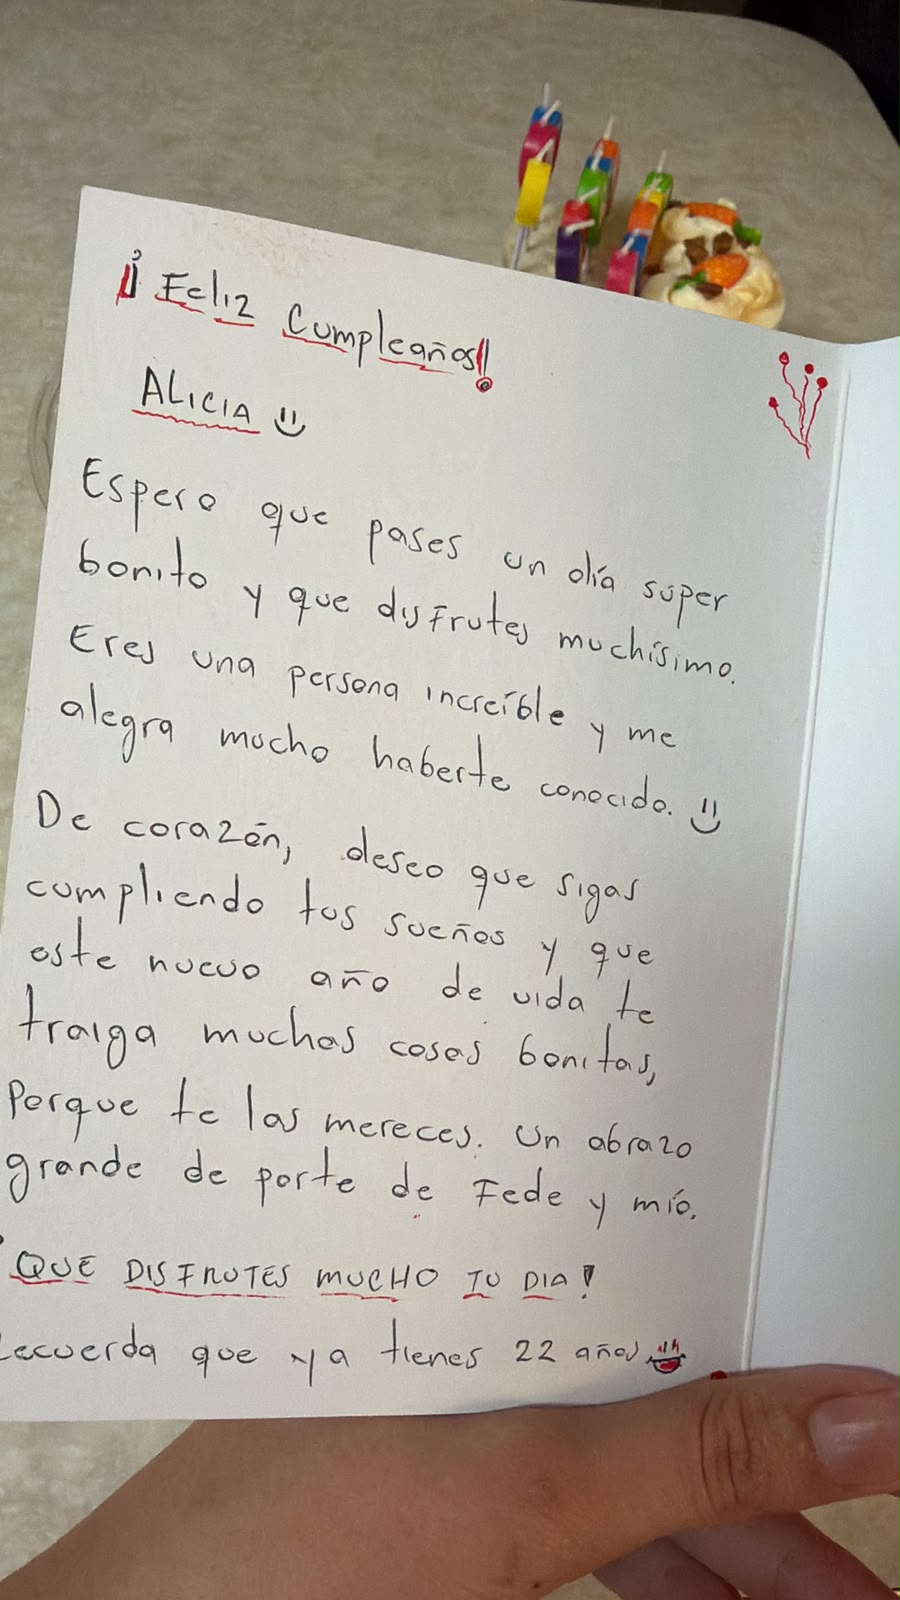 ¡Feliz Cumpleaños!
ALICIA
Espero que pases un día súper
bonito y que disfrutes muchísimo.
Eres una persona increíble y me
alegra mucho haberte conocido.
De corazón, deseo que sigas
cumpliendo tus sueños y que
este nuevo año de vida te
traiga muchas cosas bonitas,
Porque te las mereces. Un abrazo
grande de parte de Fede y mío.
¡QUE DISFRUTES MUCHO TU DIA!
Recuerda que ya tienes 22 años